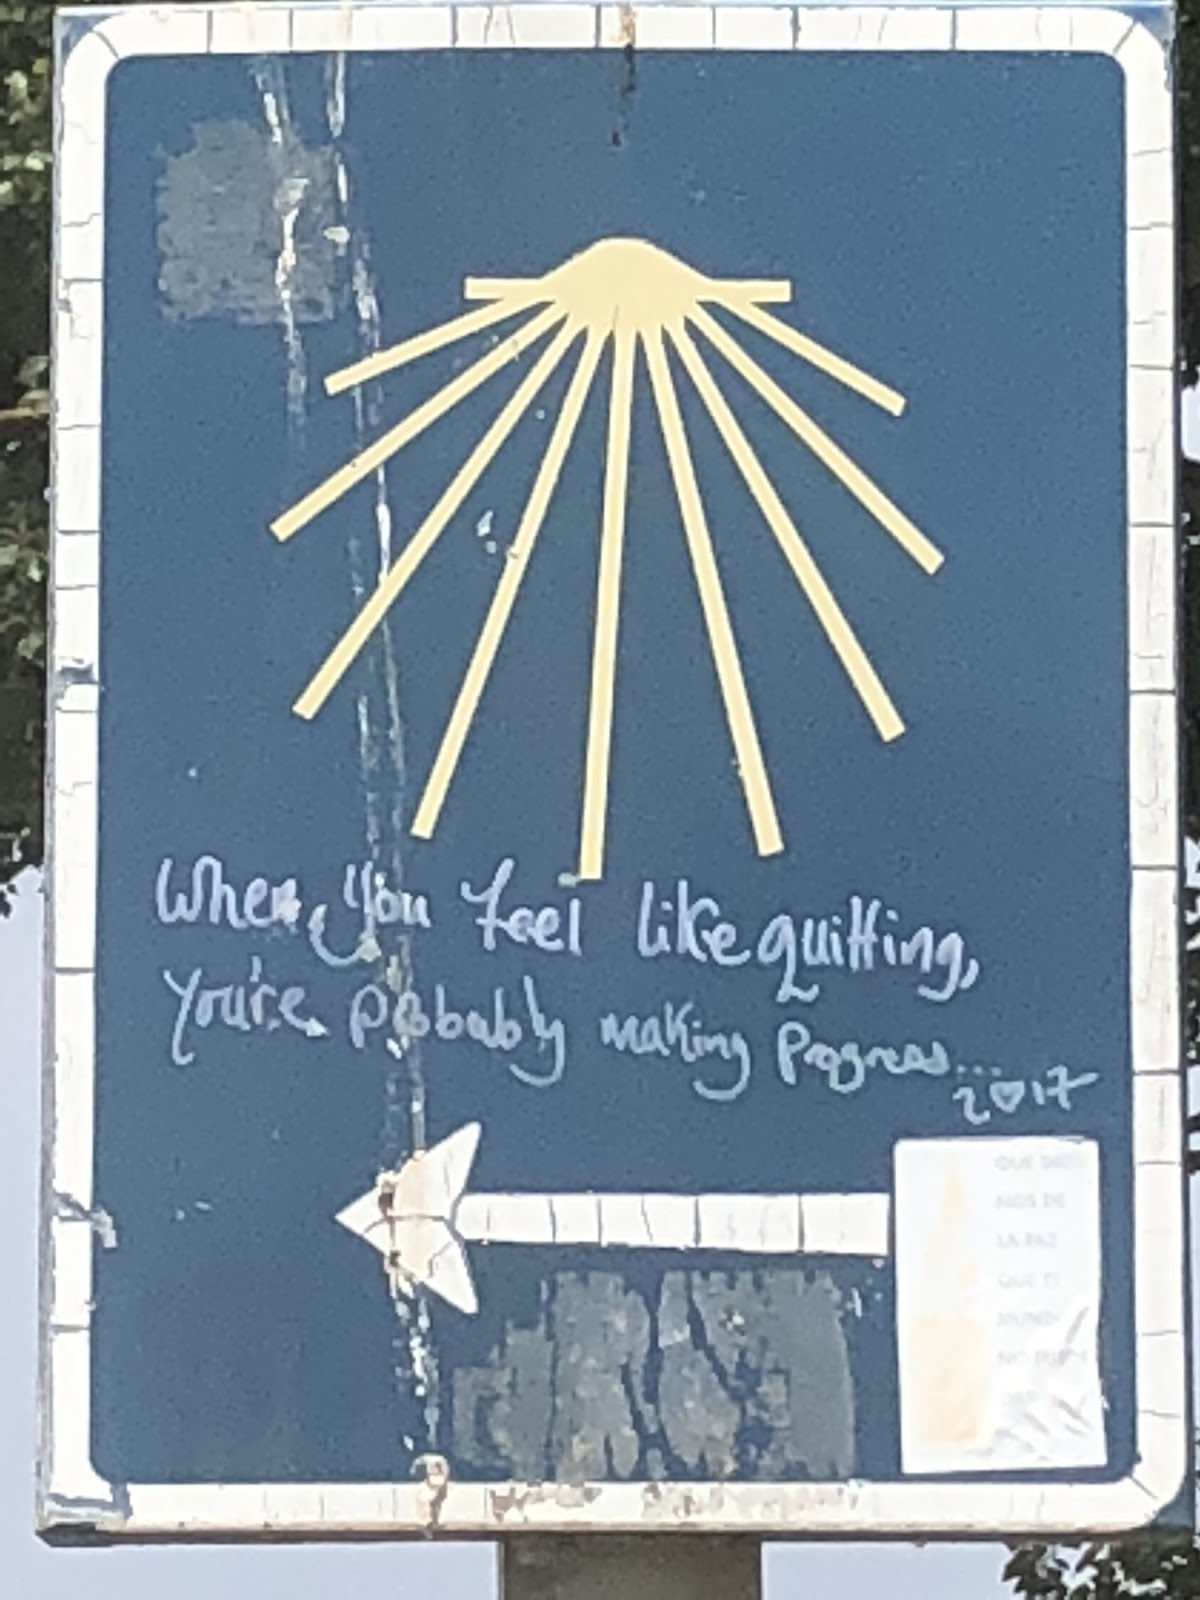 When you feel like quitting,
you're probably making progress...
2017
QUE DIOS
NOS DE
LA PAZ
QUE EL
MUNDO
NO PUEDE